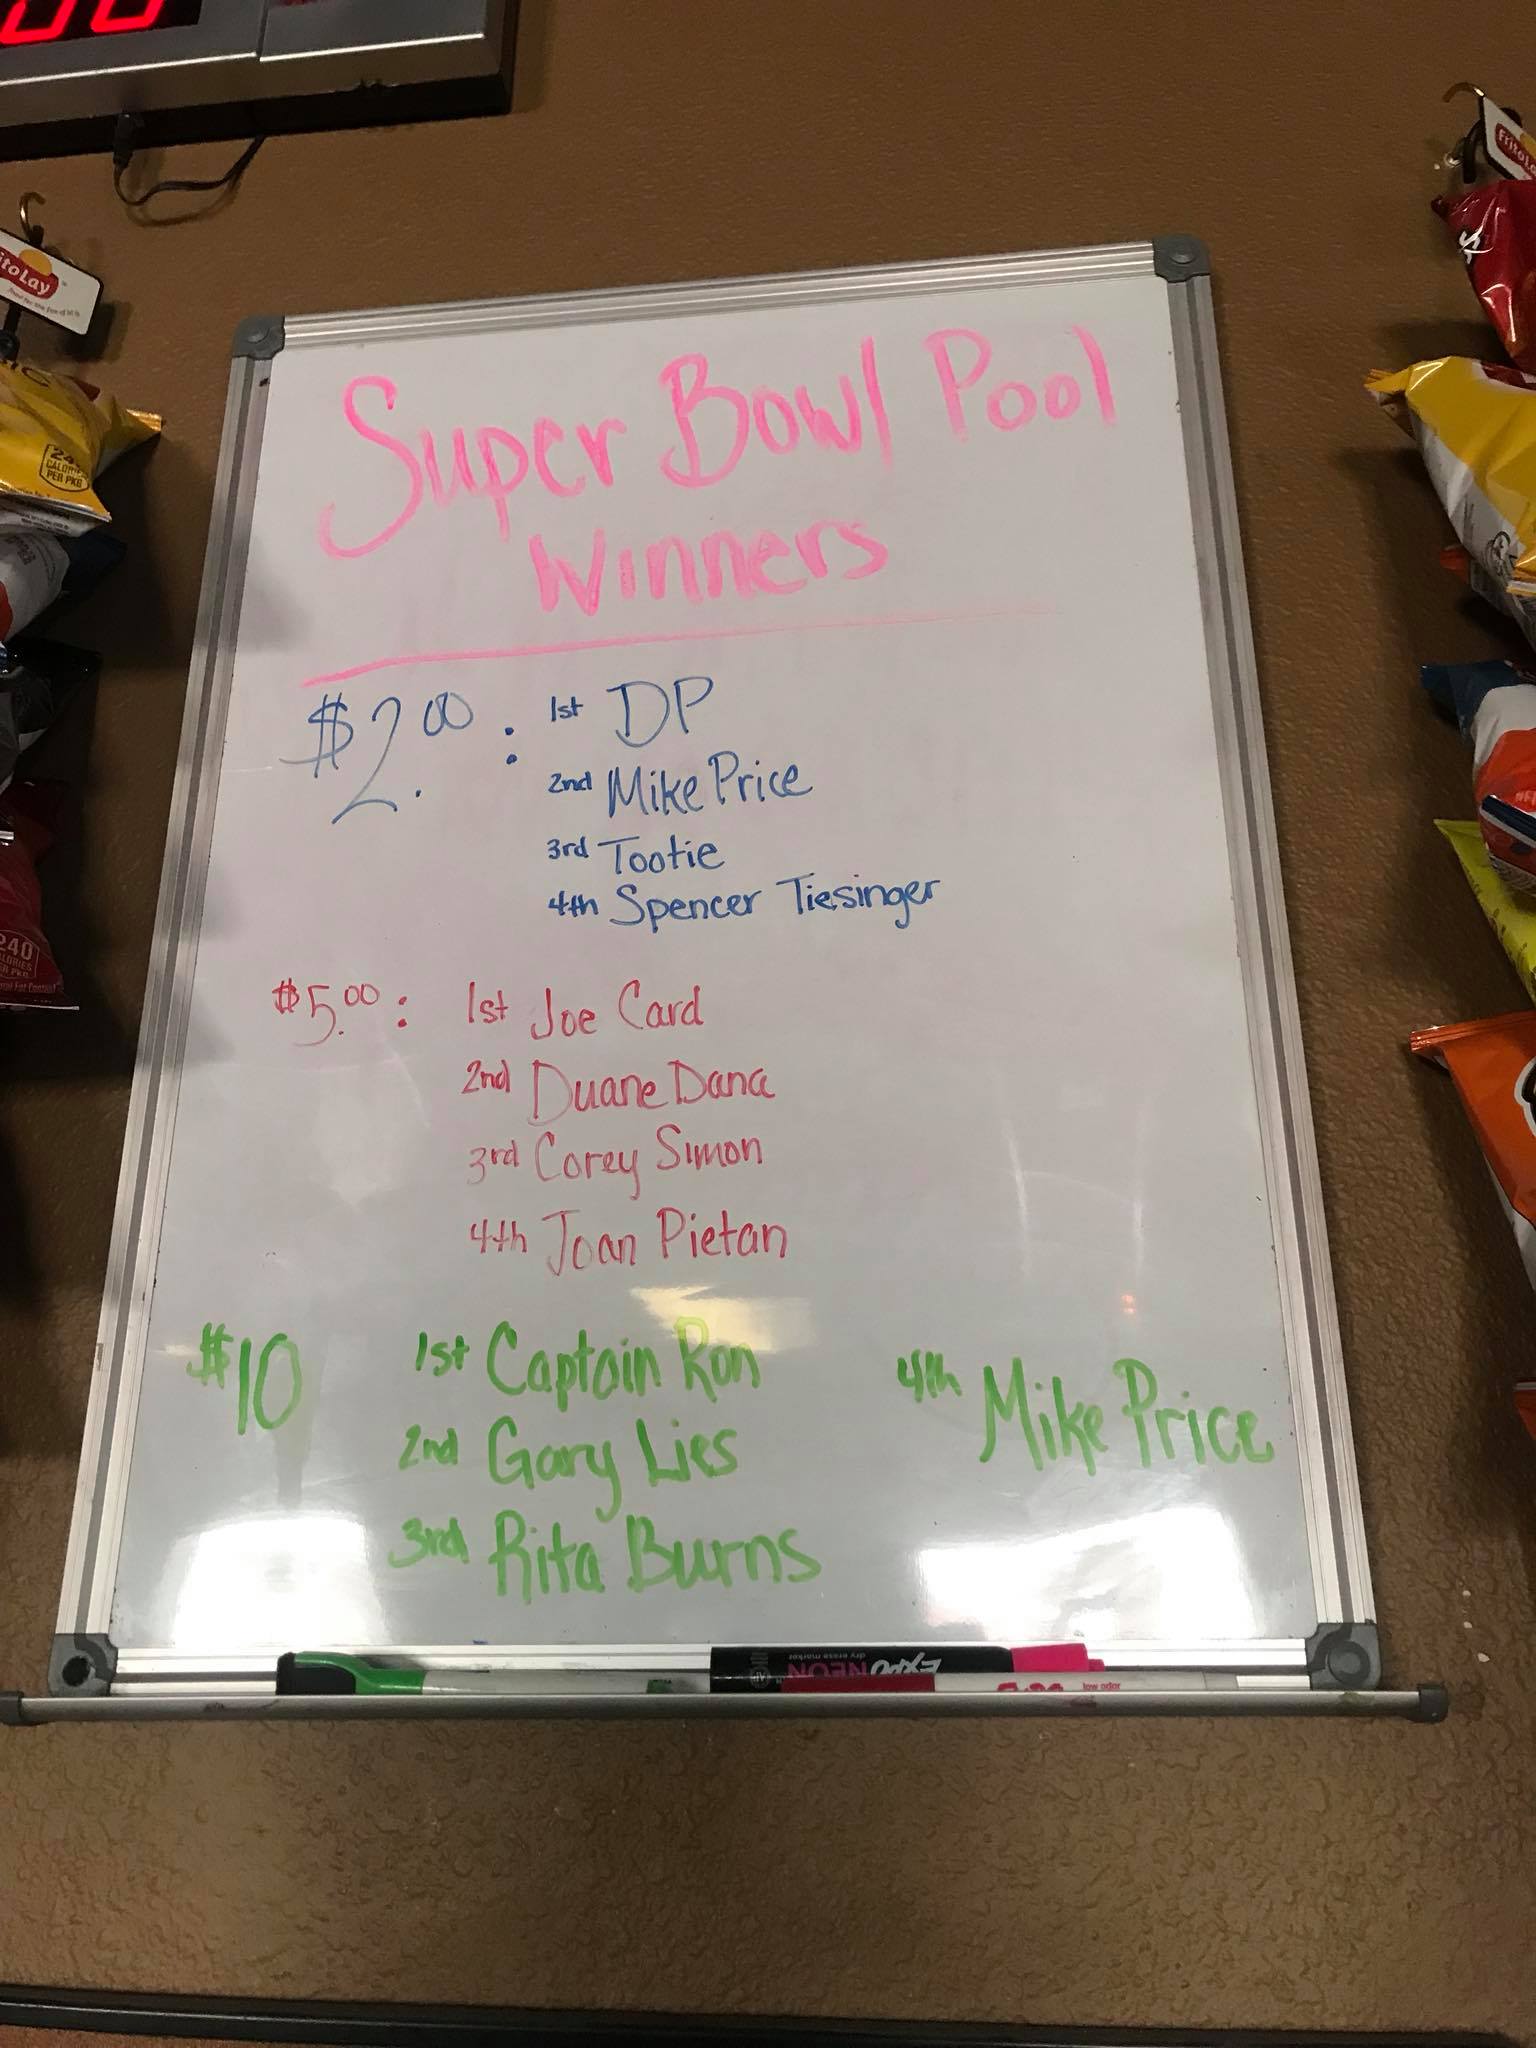 FritoLay
Super Bowl Pool
Winners
$2.00 : 1st DP
2nd Mike Price
3rd Tootie
4th Spencer Tiesinger
$5.00 : 1st Joe Card
2nd Duane Dana
3rd Corey Simon
4th Joan Pietan
$10 1st Captain Ron 4th Mike Price
2nd Gary Lies
3rd Rita Burns
EXPO NEON
dry erase marker
low odor
itoLay
CALORIES
PER PKG
240